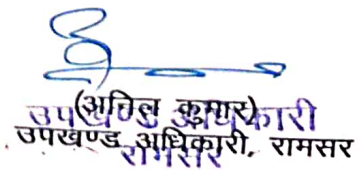 (अनिल कुमार)
उपखण्ड अधिकारी
उपखण्ड अधिकारी, रामसर
रामसर